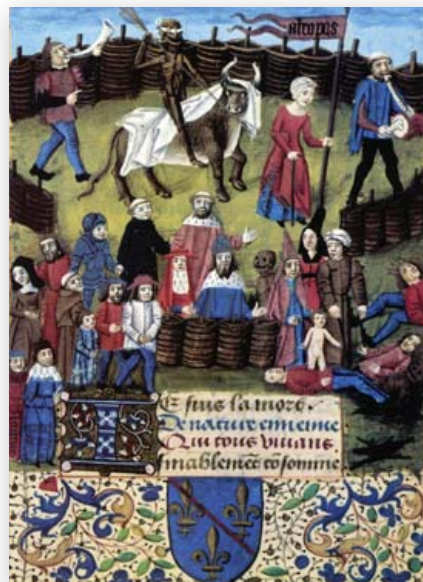 atropos
Je suis la mort.
De nature ennemie
Qui tous vivans
finablemēt cōsomme